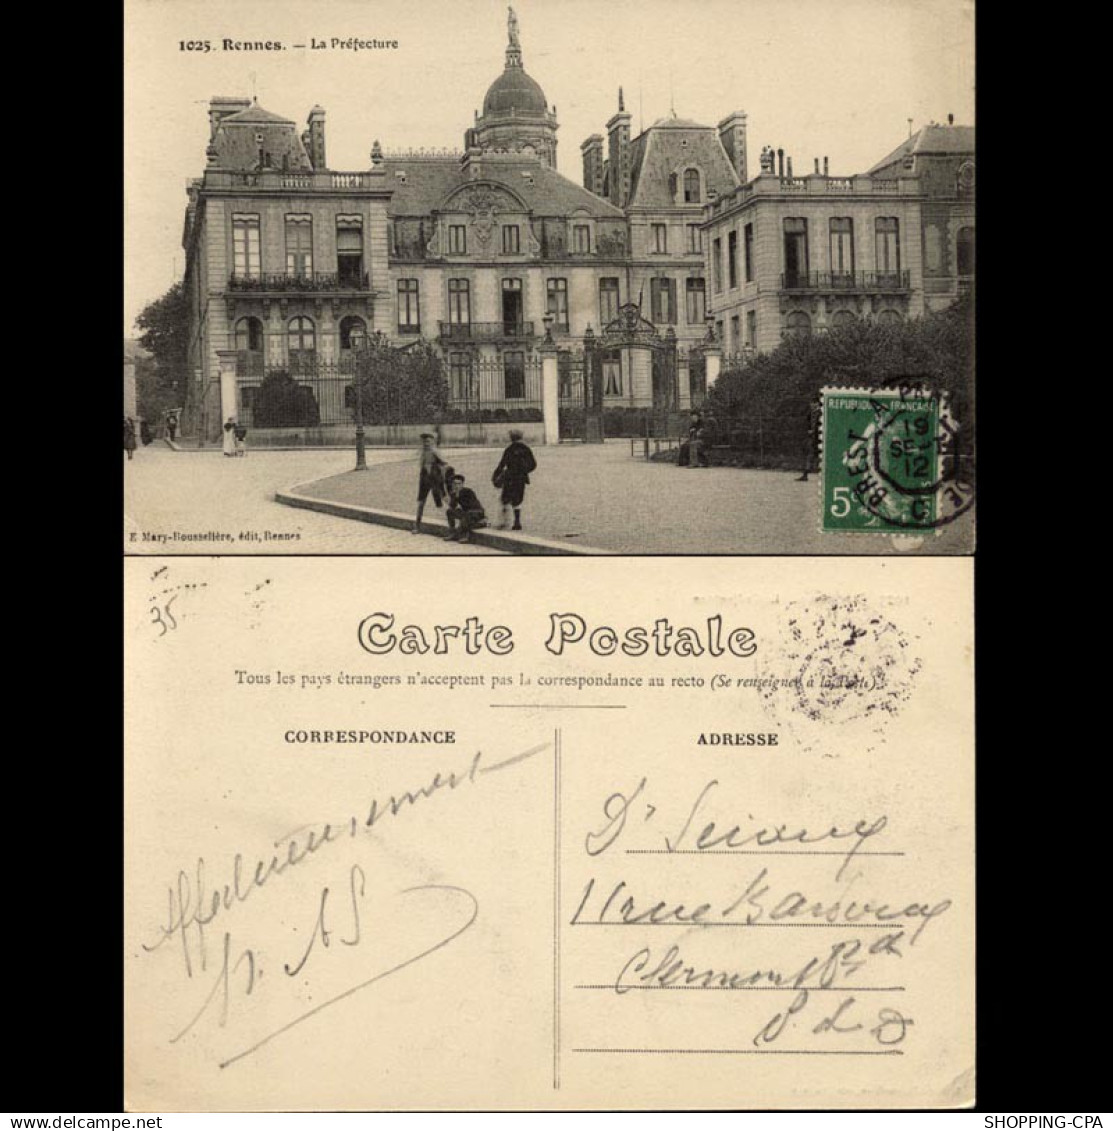 1025. Rennes. — La Préfecture
REPUBLIQUE FRANÇAISE
5
BREST A PARIS
19
SEPT
12
E Mary-Rousselière, édit, Rennes
35
Carte Postale
Tous les pays étrangers n'acceptent pas la correspondance au recto (Se renseigner à la Poste).
CORRESPONDANCE
ADRESSE
Affectueusement
Dr
11 rue
Clermont Fd
P. d. D
SHOPPING-CPA